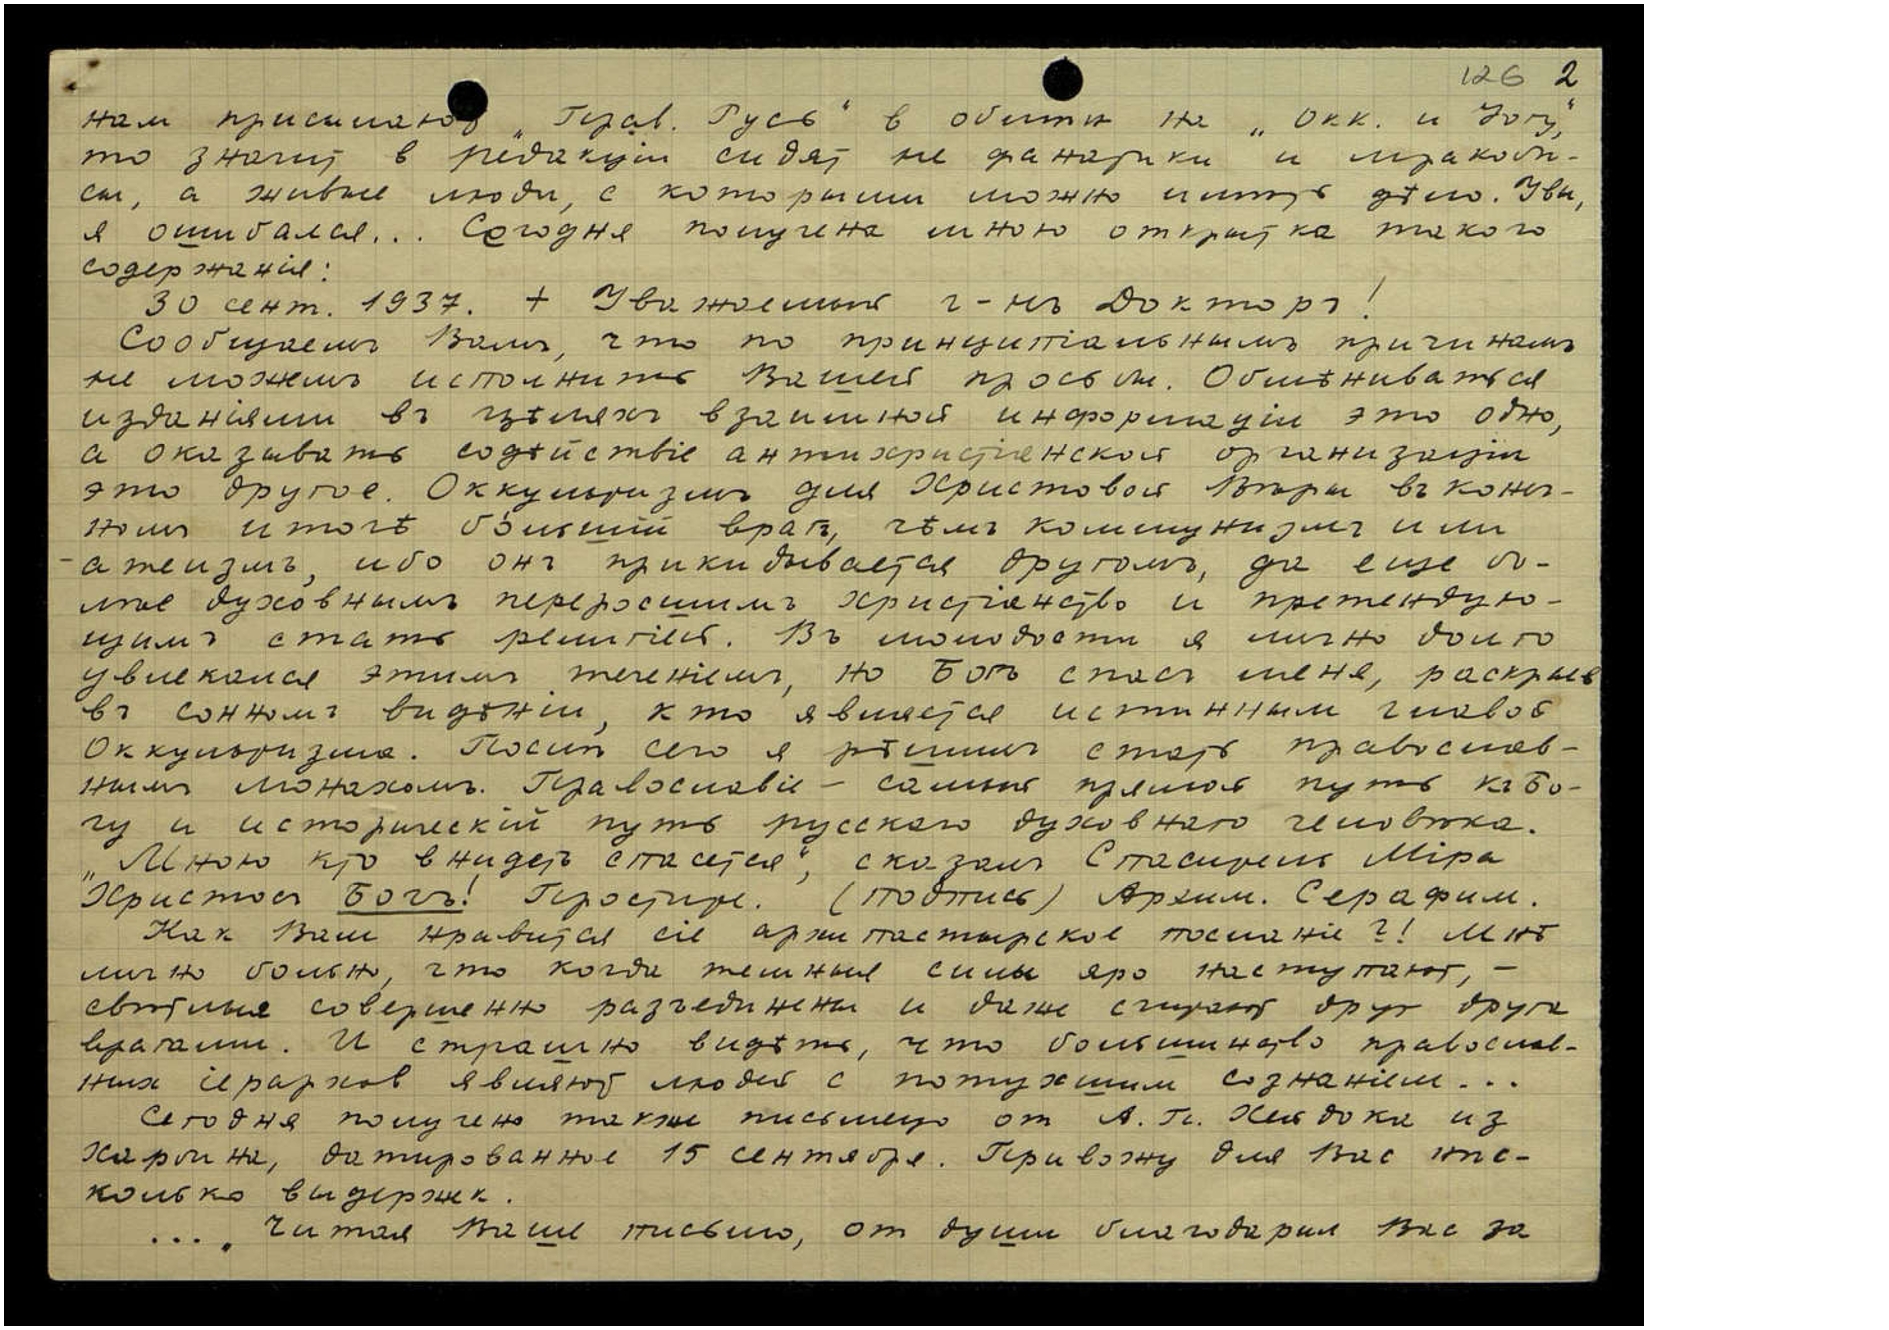 126 2
нам присылают „Прав. Русь“ в обмен на „Окк. и Йогу“,
то значит в редакціи сидят не фанатики и мракобе-
сы, а живые люди, с которыми можно имѣть дѣло. Увы,
я ошибался... Сегодня получена мною открытка такого
содержанія:
30 сент. 1937. + Уважаемый г-нъ Докторъ!
Сообщаемъ Вамъ, что по принципіальнымъ причинамъ
не можемъ исполнить Вашей просьбы. Обмѣниваться
изданіями въ цѣляхъ взаимной информаціи это одно,
а оказывать содѣйствіе антихристіанской организаціи
это другое. Оккультизмъ для Христовой Вѣры въ конеч-
номъ итогѣ бо́льшій врагъ, чѣмъ коммунизмъ или
атеизмъ, ибо онъ прикидывается другомъ, да еще бо-
лѣе духовнымъ переросшимъ христіанство и претендую-
щимъ стать религіей. Въ молодости я лично долго
увлекался этимъ теченіемъ, но Богъ спасъ меня, раскрывъ
въ сонномъ видѣніи, кто является истинным главой
Оккультизма. Послѣ сего я рѣшилъ стать православ-
нымъ монахомъ. Православіе – самый прямой путь къ Бо-
гу и историческій путь русскаго духовнаго человѣка.
„Мною кто внидетъ спасется“, сказалъ Спаситель Міра
Христосъ Богъ! Простите. (подпись) Архим. Серафим.
Как Вам нравится сіе архипастырское посланіе?! Мнѣ
лично больно, что когда темныя силы яро наступают, –
свѣтлыя совершенно разъединены и даже считают друг друга
врагами. И страшно видѣть, что большинство православ-
ных іерархов являют людей с потухшим сознаніем...
Сегодня получено также письмецо от А. П. Хейдока из
Харбина, датированное 15 сентября. Привожу для Вас нѣс-
колько выдержек.
... „Читая Ваше письмо, от души благодарил Вас за